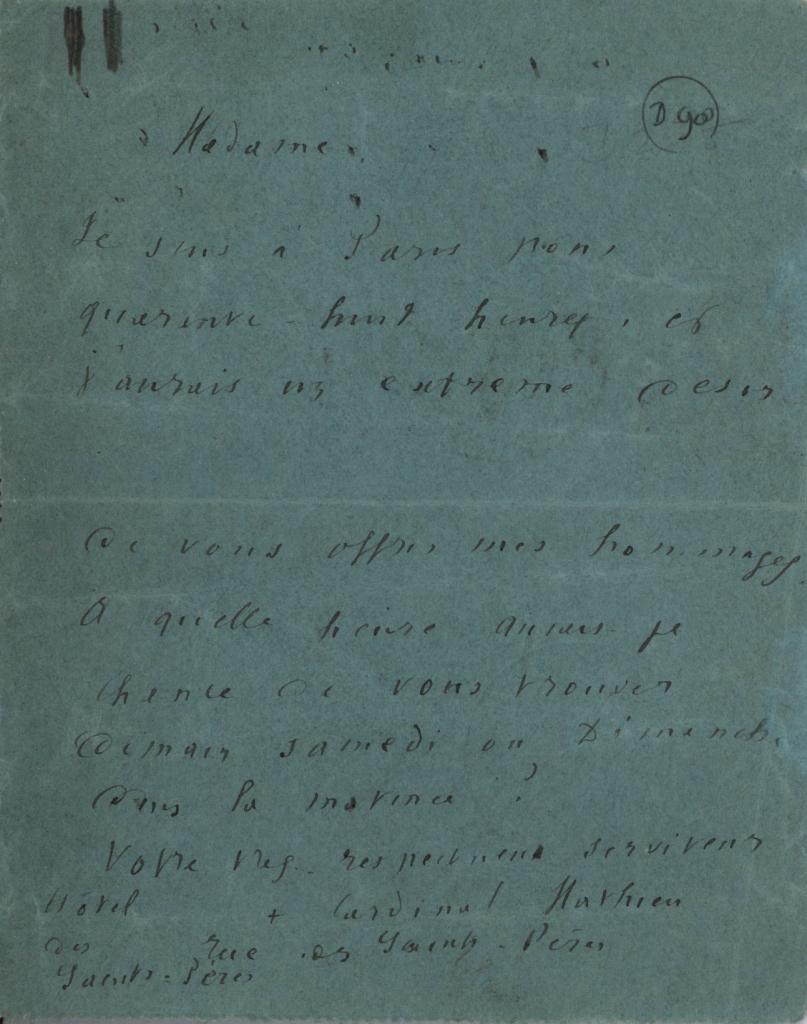 D 90
Madame,
Je suis à Paris pour
quarante-huit heures, et
j'aurais un extrême désir
de vous offrir mes hommages.
A quelle heure aurais-je
chance de vous trouver
demain samedi ou Dimanche
dans la matinée ?
Votre très respectueux serviteur
+ Cardinal Mathieu
Hôtel
des
Saints-Pères
rue des Saints-Pères